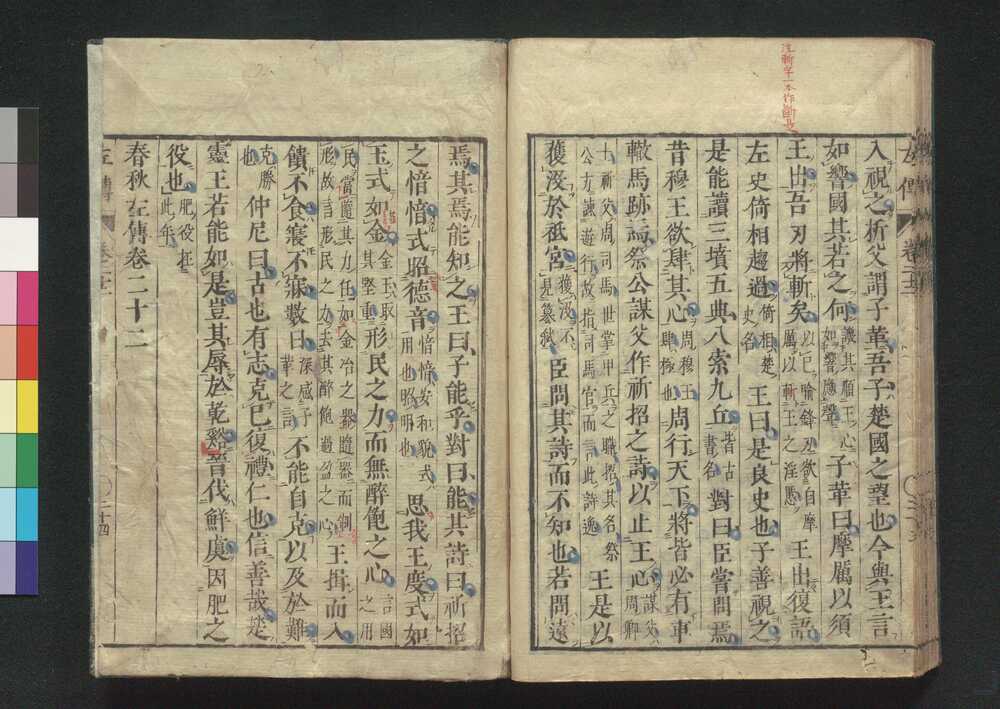 入視之析父謂子革吾子楚國之望也今與王言
如響國其若之何譏其順王心如響應聲子革曰摩厲以須
王出吾刃將斬矣以己喻鋒刃欲自摩厲以斬王之淫慝王出復語
左史倚相趨過倚相楚史名王曰是良史也子善視之
是能讀三墳五典八索九丘皆古書名對曰臣嘗問焉
昔穆王欲肆其心周穆王肆極也周行天下將皆必有車
轍馬跡焉祭公謀父作祈招之詩以止王心謀父周卿
士祈父周司馬世掌甲兵之職招其名祭公方諫遊行故指司馬官而言此詩逸王是以
獲沒於祇宮獲沒不見篡弒臣問其詩而不知也若問遠
焉其焉能知之王曰子能乎對曰能其詩曰祈招
之愔愔式昭德音愔愔安和貌式用也昭明也思我王度式如
玉式如金金玉取其堅重形民之力而無醉飽之心言國之用
民當隨其力任如金冶之器隨器而制形故言形民之力去其醉飽過盈之心王揖而入
饋不食寢不寐數日深感子革之言不能自克以及於難
克勝也仲尼曰古也有志克己復禮仁也信善哉楚
靈王若能如是豈其辱於乾谿晉伐鮮虞因肥之
役也肥役在此年
春秋左傳卷二十二